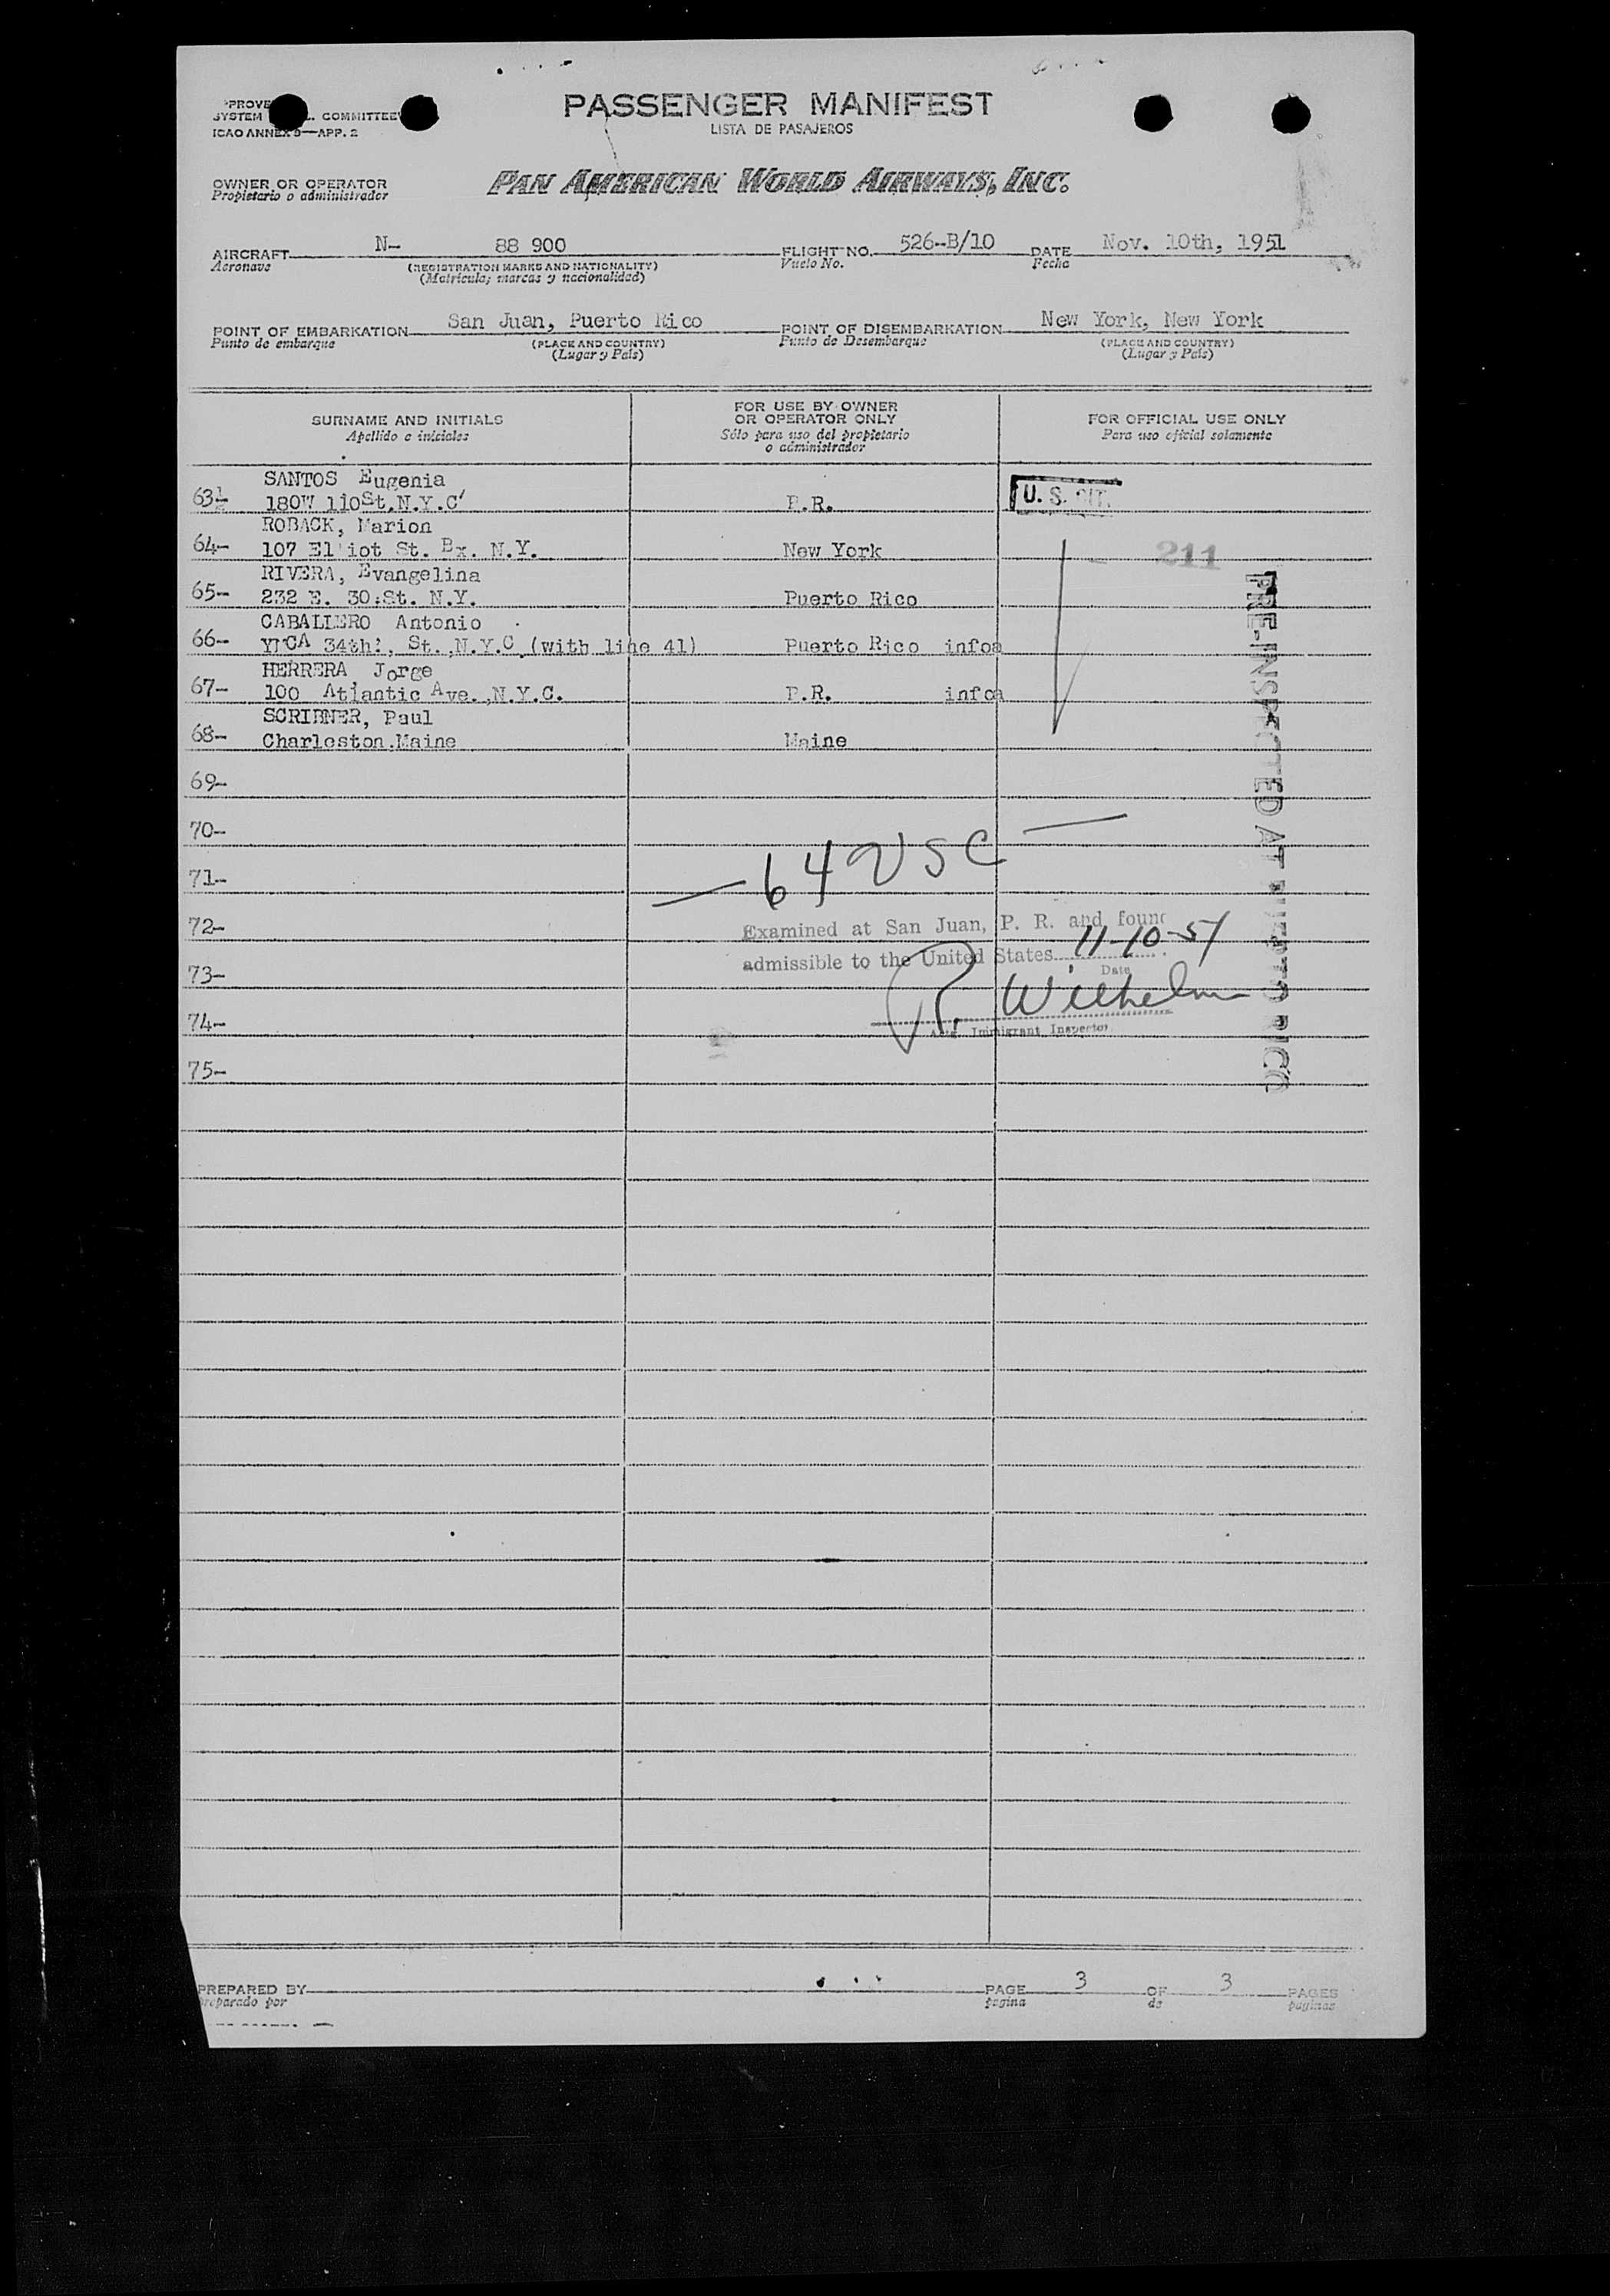 PASSENGER MANIFEST
LISTA DE PASAJEROS
SYSTEM COMMITTEE
ICAO ANNEX 9—APP. 2
OWNER OR OPERATOR
Propietario o administrador
PAN AMERICAN WORLD AIRWAYS, INC.
AIRCRAFT N- 88 900 FLIGHT NO. 526-B/10 DATE Nov. 10th, 1951
Aeronave (REGISTRATION MARKS AND NATIONALITY) Vuelo No. Fecha
(Matricula; marcas y nacionalidad)
POINT OF EMBARKATION San Juan, Puerto Rico POINT OF DISEMBARKATION New York, New York
Punto de embarque (PLACE AND COUNTRY) Punto de Desembarque (PLACE AND COUNTRY)
(Lugar y País) (Lugar y País)
SURNAME AND INITIALS
Apellido e iniciales
FOR USE BY OWNER
OR OPERATOR ONLY
Sólo para uso del propietario
o administrador
FOR OFFICIAL USE ONLY
Para uso oficial solamente
SANTOS Eugenia
63- 180W 110St.N.Y.C P.R. U. S. CIT.
ROBACK, Marion
64- 107 Elliot St. Bx. N.Y. New York 211
RIVERA, Evangelina
65- 232 E. 30:St. N.Y. Puerto Rico
CABALLERO Antonio
66- YMCA 34th:, St.,N.Y.C.(with line 41) Puerto Rico infoa
HERRERA Jorge
67- 100 Atlantic Ave.,N.Y.C. P.R. infoa
SCRIBNER, Paul
68- Charleston.Maine Maine
69-
70-
71-
72-
73-
74-
75-
PRE-INSPECTED AT PUERTO RICO
— 64 USC —
Examined at San Juan, P. R. and found
admissible to the United States 11-10-51
Date
P. Wilhelm
Immigrant Inspector
PREPARED BY PAGE 3 OF 3 PAGES
preparado por pagina de paginas